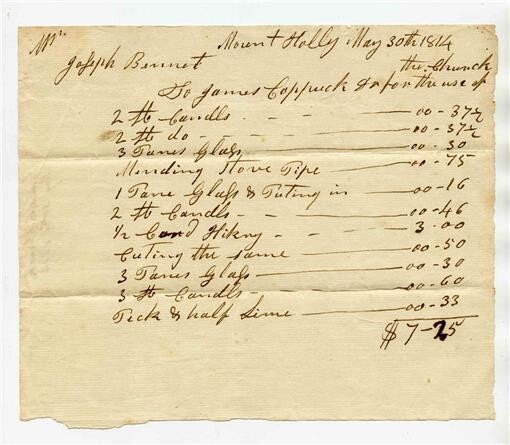 Mr. Mount Holly May 30th 1814
Joseph Bennet
the Church
To James Coppuck Dr for the use of
2 lb Candls - - - 00-37½
2 lb do - - - - 00-37½
3 Panes Glass 00-30
Mending Stove Pipe 00-75
1 Pane Glass & Puting in 00-16
2 lb Candls - 00-46
1/2 Cord Hikry - 3-00
Cuting the same 00-50
3 Panes Glass 00-30
3 lb Candls 00-60
Peck & half Lime 00-33
$7-25